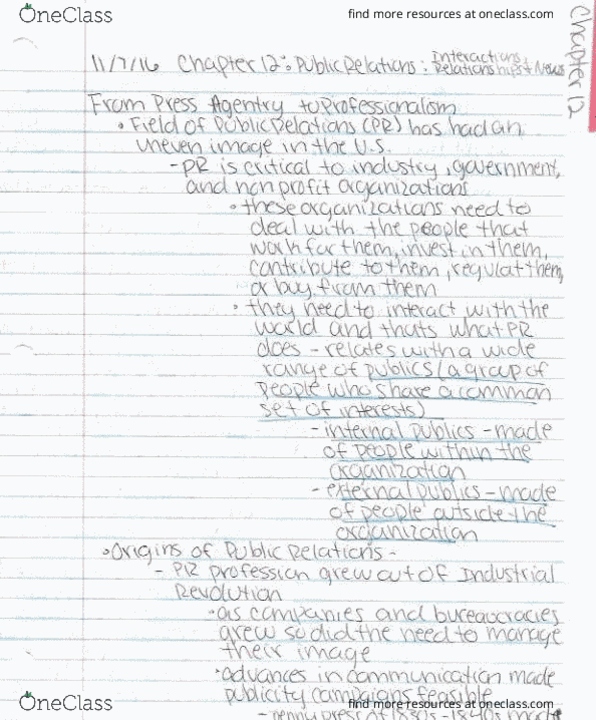 OneClass
find more resources at oneclass.com
Chapter 12
11/7/16 Chapter 12: Public Relations: Interactions, Relationships + News
From Press Agentry to Professionalism
• Field of Public Relations (PR) has had an
uneven image in the U.S.
- PR is critical to industry, government,
and non profit organizations
• these organizations need to
deal with the people that
work for them, invest in them,
contribute to them, regulat them,
or buy from them
• they need to interact with the
world and thats what PR
does - relates with a wide
range of publics (a group of
people who share a common
set of interests)
- internal publics - made
of people within the
organization
- external publics - made
of people outside the
organization
• Origins of Public Relations -
- PR profession grew out of Industrial
Revolution
• as companies and bureaucracies
grew so did the need to manage
their image
• advances in communication made
publicity campaigns feasible
- penny press of 1830s - 1840s made
OneClass
find more resources at oneclass.com